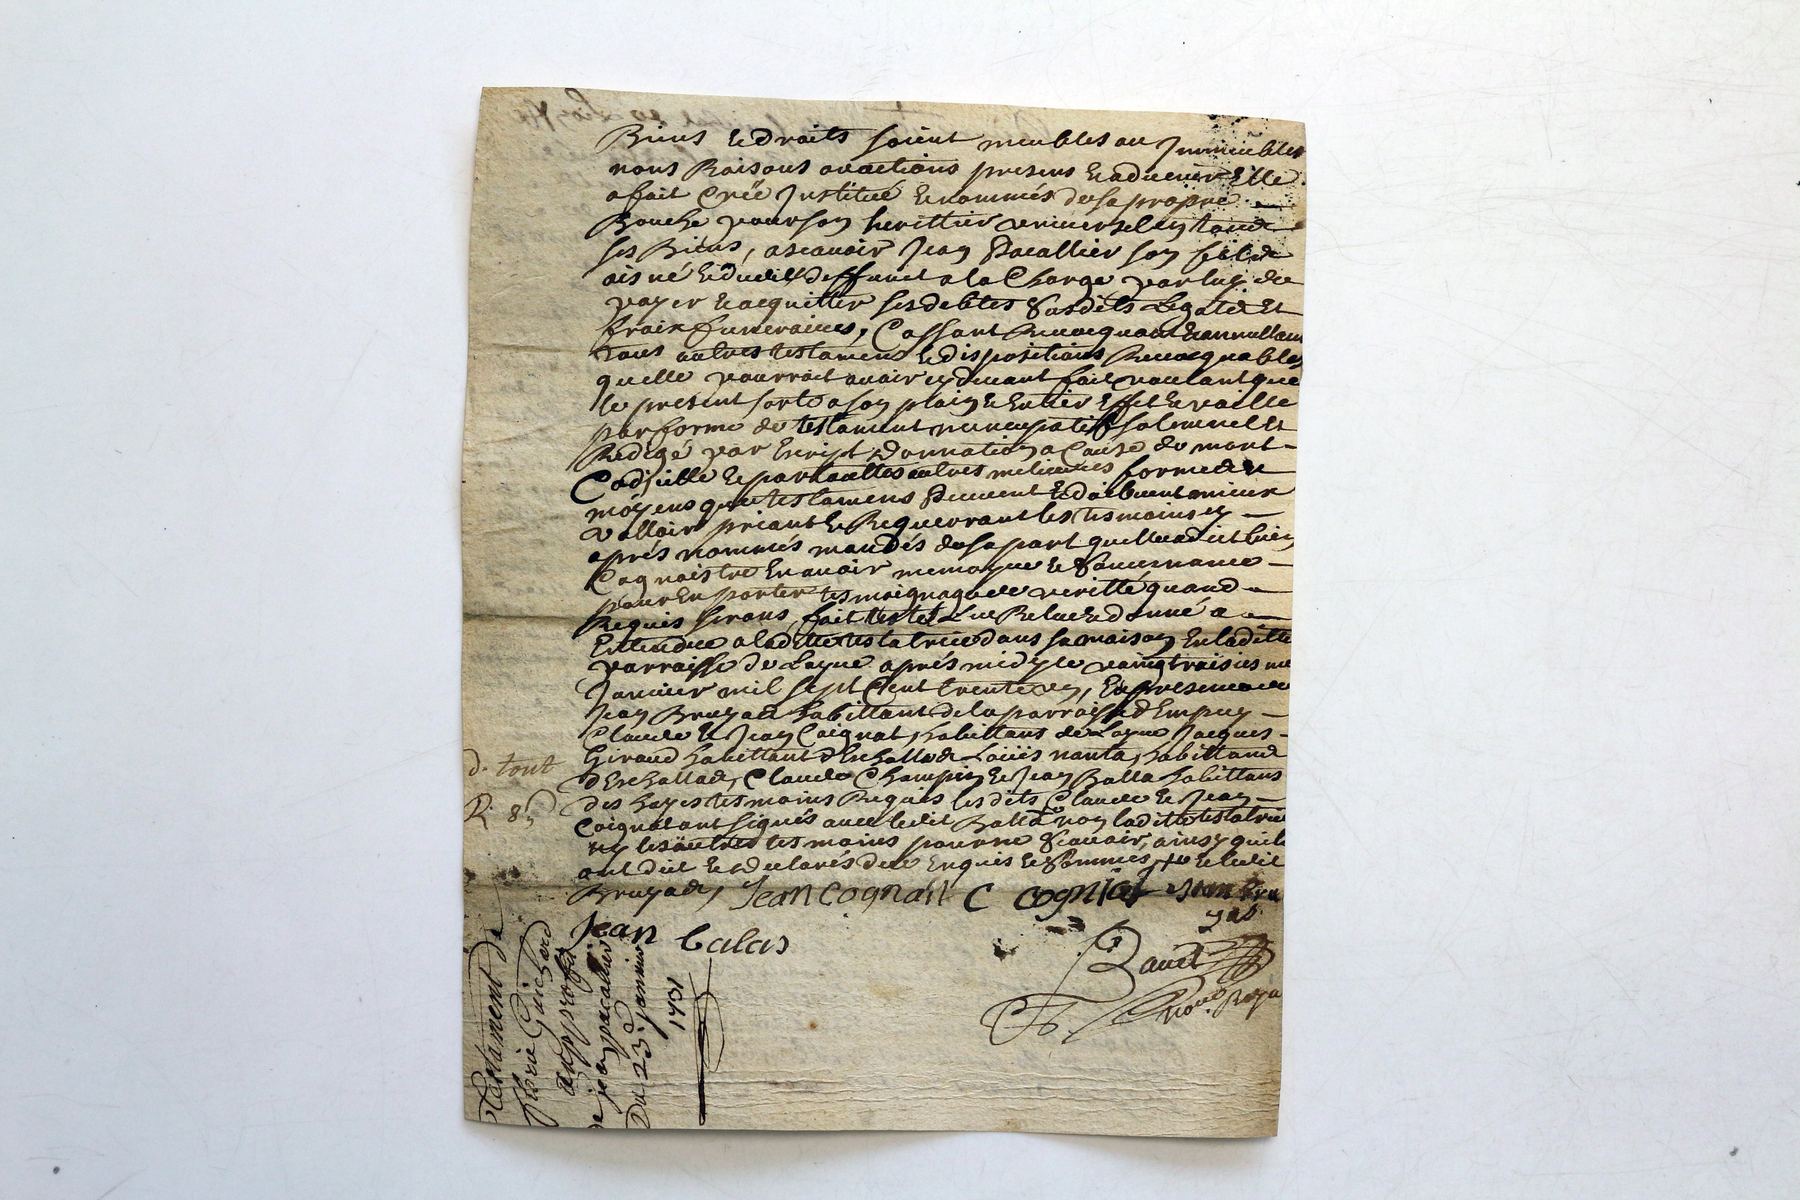 Biens & droits soient meubles ou Immeubles
noms Raisons ou actions presens & aduenir Elle
a fait Créé Institué & nommés de sa propre
Bouche pour son herittier uniuersel en tous
ses Biens, ascauoir Jean Pacallier son fils
aisné & dudit deffunct a la Charge par luy de
payer & acquitter ses debtes susdits Legats Et
fraix funeraires, Cassant Reuocquant & annullant
tous autres testamens & dispositions Reuocquables
quelle pourroit auoir cy deuant fait voulant que
le present sorte a son plain & Entier Effet & vaille
par forme de testament nuncupatif solemnel Et
Redigé par Escript donnation a Cause de mort
Codicille & par touttes autres meilieures formes &
moyens que testamens peuuent & doibuent mieux
valloir priant & Requerrant les tesmoins cy
aprés nommés mandés de sa part quelle a dit bien
Cognoistre En auoir memoyre & souuenance
pour En porter tesmoignage de veritté quand
Requis seront, fait Leu Releu & donné a
Entendre a la ditte testatrice dans sa maison En laditte
parroisse de Layue aprés midy le vaingtroisieme
Januier mil sept Cent trente un, En presence de
Jean Bruyas habittant de la parroisse d'Empuy
Claude & Jean Coignat, habittans de Layue Jacques
Giraud habittant d'Eschallas Loüis nanta, habittant
d'Eschallas, Claude Champin & Jean Balla habittans
des hayes tesmoins Requis lesdits Claude & Jean
Coignat ont signés auec ledit Balla non laditte testatrice
ny les autres tesmoins pour ne scauoir, ainsy quils
ont dit & declarés de ce Enquis & sommés & ledit
Bruyas,
Jean cognait C cogniat Jean Bru
yas
d. tont
R. 85
Jean balas
Testament de
florie Guichard
au proffit
de jean pacallier
Du 23e januier
1731